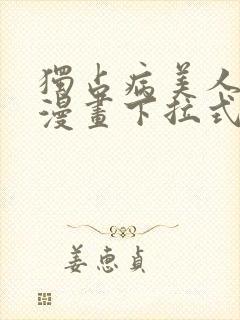 獨占病美人
漫畫下拉式
姜惠貞